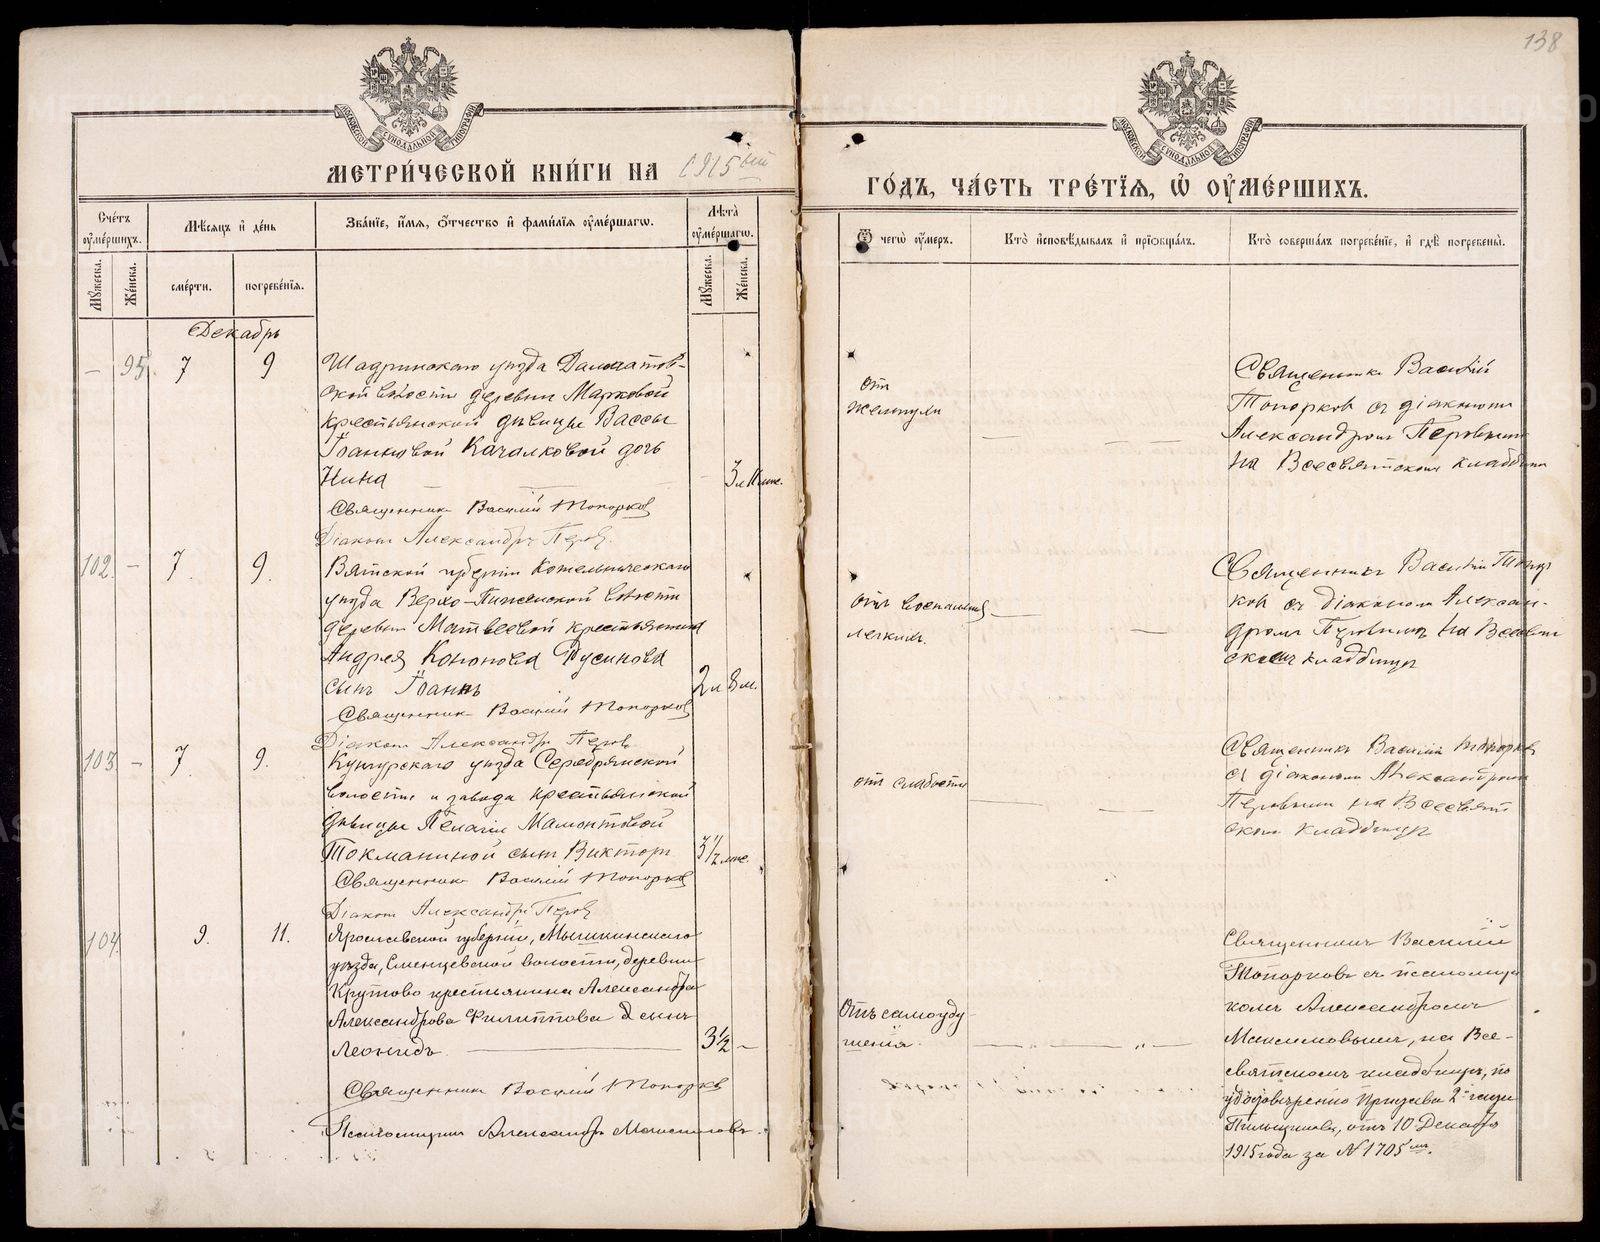 138
МОСКОВСКОЙ СѴНОДАЛЬНОЙ ТИПОГРАФІИ
МОСКОВСКОЙ СѴНОДАЛЬНОЙ ТИПОГРАФІИ
МЕТРИ́ЧЕСКОЙ КНИ́ГИ НА 1915ый
ГО́ДЪ, ЧА́СТЬ ТРЕ́ТЇѦ, Ѡ҆ ОУ҆МЕ́РШИХЪ.
Сче́тъ оу҆ме́ршихъ.
Мѣ́сѧцъ и҆ де́нь
Зва́нїе, и҆́мѧ, ѻ҆́тчество и҆ фами́лїѧ оу҆ме́ршагѡ.
Лѣ́та оу҆ме́ршагѡ.
Ѿ чегѡ̀ оу҆́меръ.
Кто̀ и҆сповѣ́дывалъ и҆ прїѡбща́лъ.
Кто̀ соверша́лъ погребе́нїе, и҆ гдѣ̀ погребены̀.
Мꙋ́жеска.
Же́нска.
сме́рти.
погребе́нїѧ.
Мꙋ́жеска.
Же́нска.
Декабрь
— 95. 7 9
Шадринскаго уѣзда Далматов-
ской волости деревни Марковой
крестьянской дѣвицы Вассы
Іоанновой Качалковой дочь
Нина
3 л 11 мѣс.
Священникъ Василій Топорковъ
Діаконъ Александръ Перов
отъ
Священникъ Василій
Топорковъ съ діакономъ
Александромъ Перовымъ
на Всесвятскомъ кладбищѣ
102. — 7. 9.
Вятской губерніи Котельническаго
уѣзда Верхо-Пижемской волости
деревни Матвеевой крестьянина
Андрея Кононова Русинова
сынъ Іоаннъ
2 л 8 м.
Священникъ Василій Топорковъ
Діаконъ Александръ Перовъ
отъ воспаленія
легкихъ.
Священникъ Василій Топор
ковъ съ діакономъ Алексан-
дромъ Перовымъ на Всесвят
скомъ кладбищѣ
103. — 7. 9.
Кунгурскаго уѣзда Серебрянской
волости и завода крестьянской
дѣвицы Пелагіи Мамонтовой
Токманиной сынъ Викторъ
3½ мѣс.
Священникъ Василій Топорковъ
Діаконъ Александръ Перов
отъ слабости
Священникъ Василій Топорковъ
съ діакономъ Александромъ
Перовымъ на Всесвят
скомъ кладбищѣ
104. 9. 11.
Ярославской губерніи, Мышкинскаго
уѣзда, Сменцевской волости, деревни
Крутово крестьянина Александра
Александрова Филиппова сынъ
Леонидъ.
3½ —
Священникъ Василій Топорков
Псаломщикъ Александръ Максимовъ.
Отъ самоуду-
шенія.
Священникъ Василій
Топорковъ съ псаломщи
комъ Александромъ
Максимовымъ, на Все-
святскомъ кладбищѣ, по
удостовѣренію Пристава 2й части
отъ 10 Декабря
1915 года за № 1705мъ.